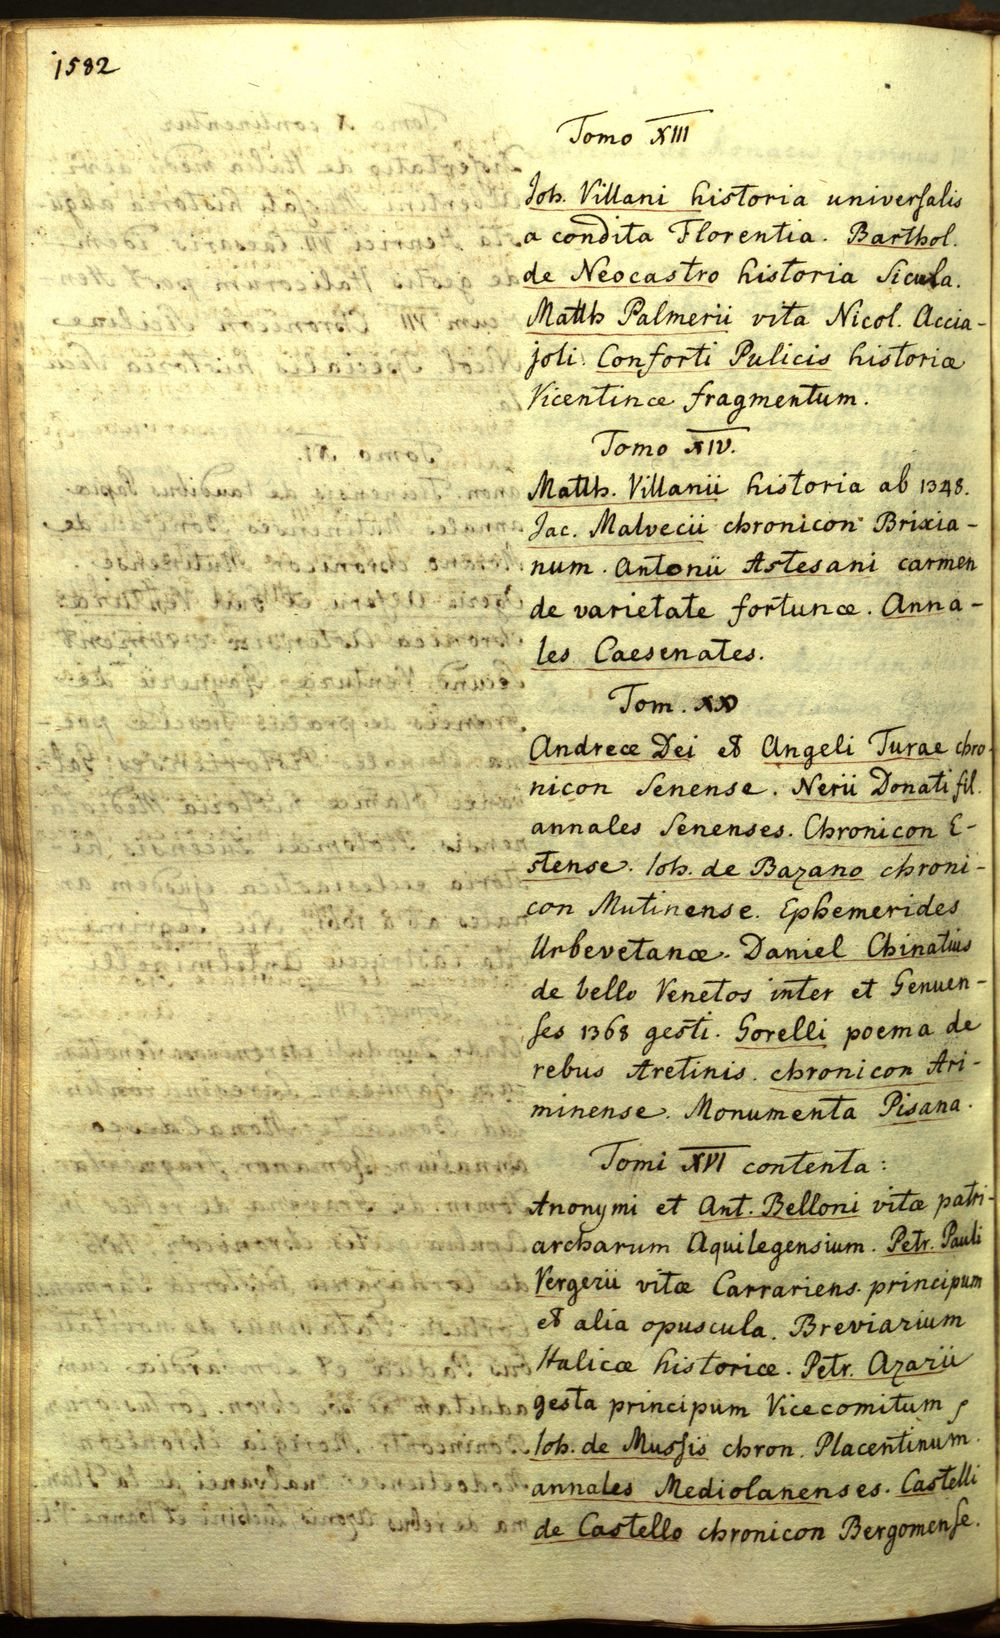 1582
Tomo XIII
Joh. Villani historia universalis
a condita Florentia. Barthol.
de Neocastro historia Sicula.
Matth Palmerii vita Nicol. Accia-
joli. Conforti Pulicis historiæ
Vicentinæ fragmentum.
Tomo XIV.
Matth. Villanii historia ab 1348.
Jac. Malvecii chronicon Brixia-
num. Antonii Astesani carmen
de varietate fortunæ. Anna-
les Caesenates.
Tom. XV
Andreæ Dei et Angeli Turae chro-
nicon Senense. Nerii Donati fil.
annales Senenses. Chronicon E-
stense. Joh. de Bazano chroni-
con Mutinense. Ephemerides
Urbevetanæ. Daniel Chinatius
de bello Venetos inter et Genuen-
ses 1368 gesti. Gorelli poema de
rebus Aretinis. chronicon Ari-
minense. Monumenta Pisana.
Tomi XVI contenta:
Anonymi et Ant. Belloni vitæ patri-
archarum Aquilegensium. Petr. Pauli
Vergerii vitæ Carrariens. principum
et alia opuscula. Breviarium
Italicæ historiæ. Petr. Azarii
gesta principum Vicecomitum,
Joh. de Mussis chron. Placentinum.
annales Mediolanenses. Castelli
de Castello chronicon Bergomense.